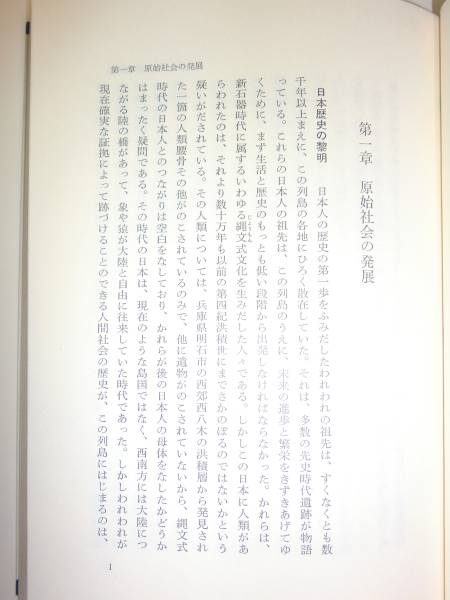 第一章　原始社会の発展
第一章　原始社会の発展
日本歴史の黎明　日本人の歴史の第一歩をふみだしたわれわれの祖先は、すくなくとも数
千年以上まえに、この列島の各地にひろく散在していた。それは、多数の先史時代遺跡が物語
っている。これらの日本人の祖先は、この列島のうえに、未来の進歩と繁栄をきずきあげてゆ
くために、まず生活と歴史のもっとも低い段階から出発しなければならなかった。かれらは、
新石器時代に属するいわゆる縄文式文化を生みだした人々である。しかしこの日本に人類があ
らわれたのは、それより数十万年も以前の第四紀洪積世にまでさかのぼるのではないかという
疑いがだされている。その人類については、兵庫県明石市の西郊西八木の洪積層から発見され
た一箇の人類腰骨その他がのこされているのみで、他に遺物がのこされていないから、縄文式
時代の日本人とのつながりは空白をなしており、かれらが後の日本人の母体をなしたかどうか
はまったく疑問である。その時代の日本は、現在のような島国ではなく、西南方には大陸につ
ながる陸の橋があって、象や猿が大陸と自由に往来していた時代であった。しかしわれわれが
現在確実な証拠によって跡づけることのできる人間社会の歴史が、この列島にはじまるのは、
1